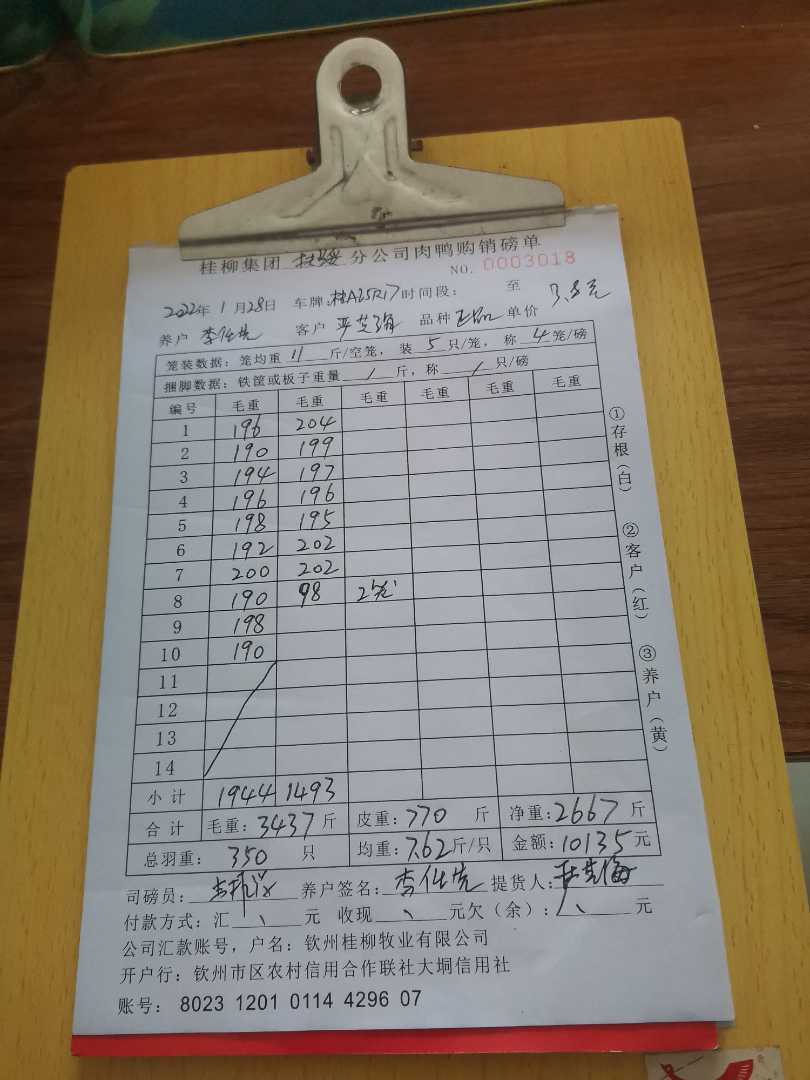 桂柳集团 扶绥 分公司肉鸭购销磅单
NO. 0003018
2022年 1月28日 车牌:桂A25R17 时间段: 至
养户 李仕先 客户 严芝海 品种 正品 单价 3.8元
笼装数据:笼均重 11 斤/空笼,装 5 只/笼,称 4 笼/磅
捆脚数据:铁筐或板子重量 / 斤,称 / 只/磅
编号 毛重 毛重 毛重 毛重 毛重 毛重
1 196 204
2 190 199
3 194 197
4 196 196
5 198 195
6 192 202
7 200 202
8 190 98 2笼
9 198
10 190
11
12
13
14
小计 1944 1493
合计 毛重:3437斤 皮重:770 斤 净重:2667 斤
总羽重: 350 只 均重:7.62斤/只 金额:10135元
司磅员: 养户签名:李仕先 提货人:严芝海
付款方式:汇 、 元 收现 、 元欠(余): 、 元
公司汇款账号,户名:钦州桂柳牧业有限公司
开户行:钦州市区农村信用合作联社大垌信用社
账号: 8023 1201 0114 4296 07
①存根(白)
②客户(红)
③养户(黄)